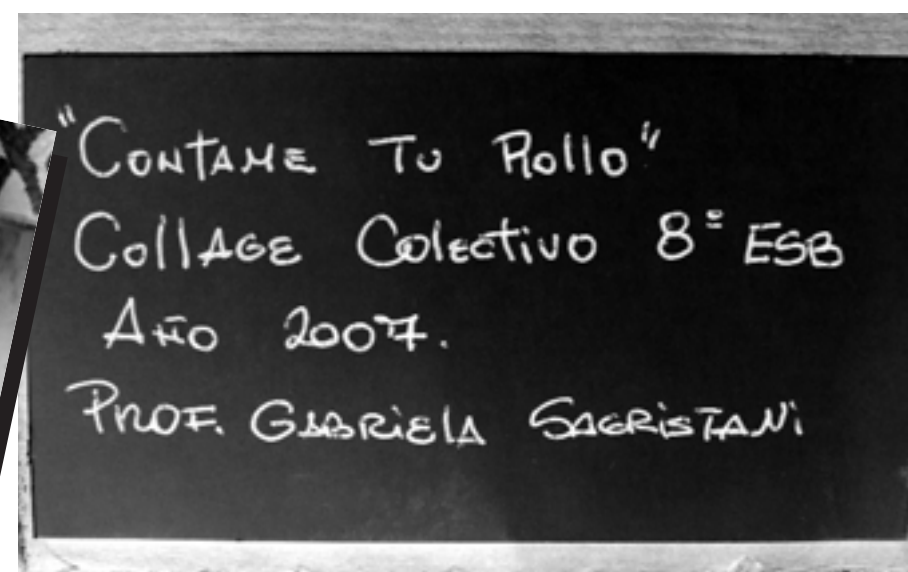 "Contame Tu Rollo"
Collage Colectivo 8º ESB
Año 2007.
Prof. Gabriela Sacristani